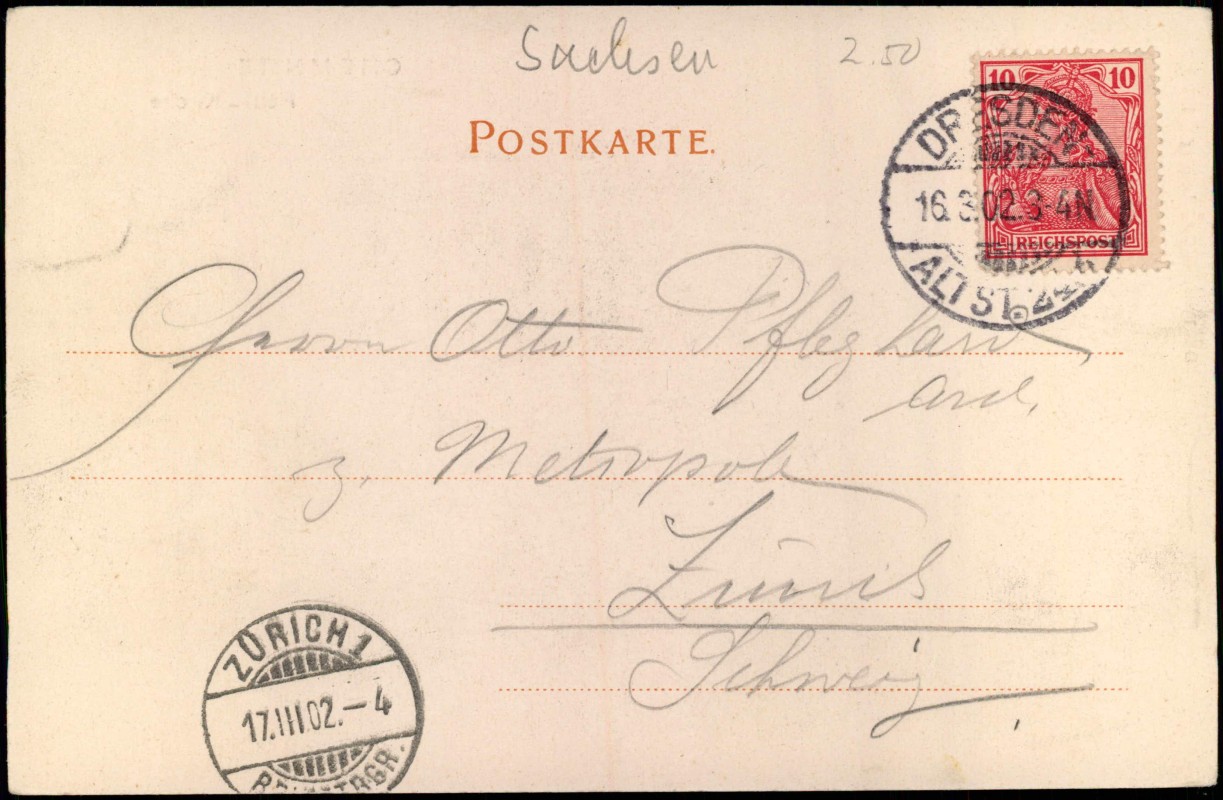 Sachsen 2.50
10 10
POSTKARTE.
DRESDEN
16.3.02.3-4N
REICHSPOST
ALTST. 24
Herrn Otto Pfleghard
Arch.
z. Metropole
Zürich
Schweiz
ZÜRICH 1
17.III.02.-4